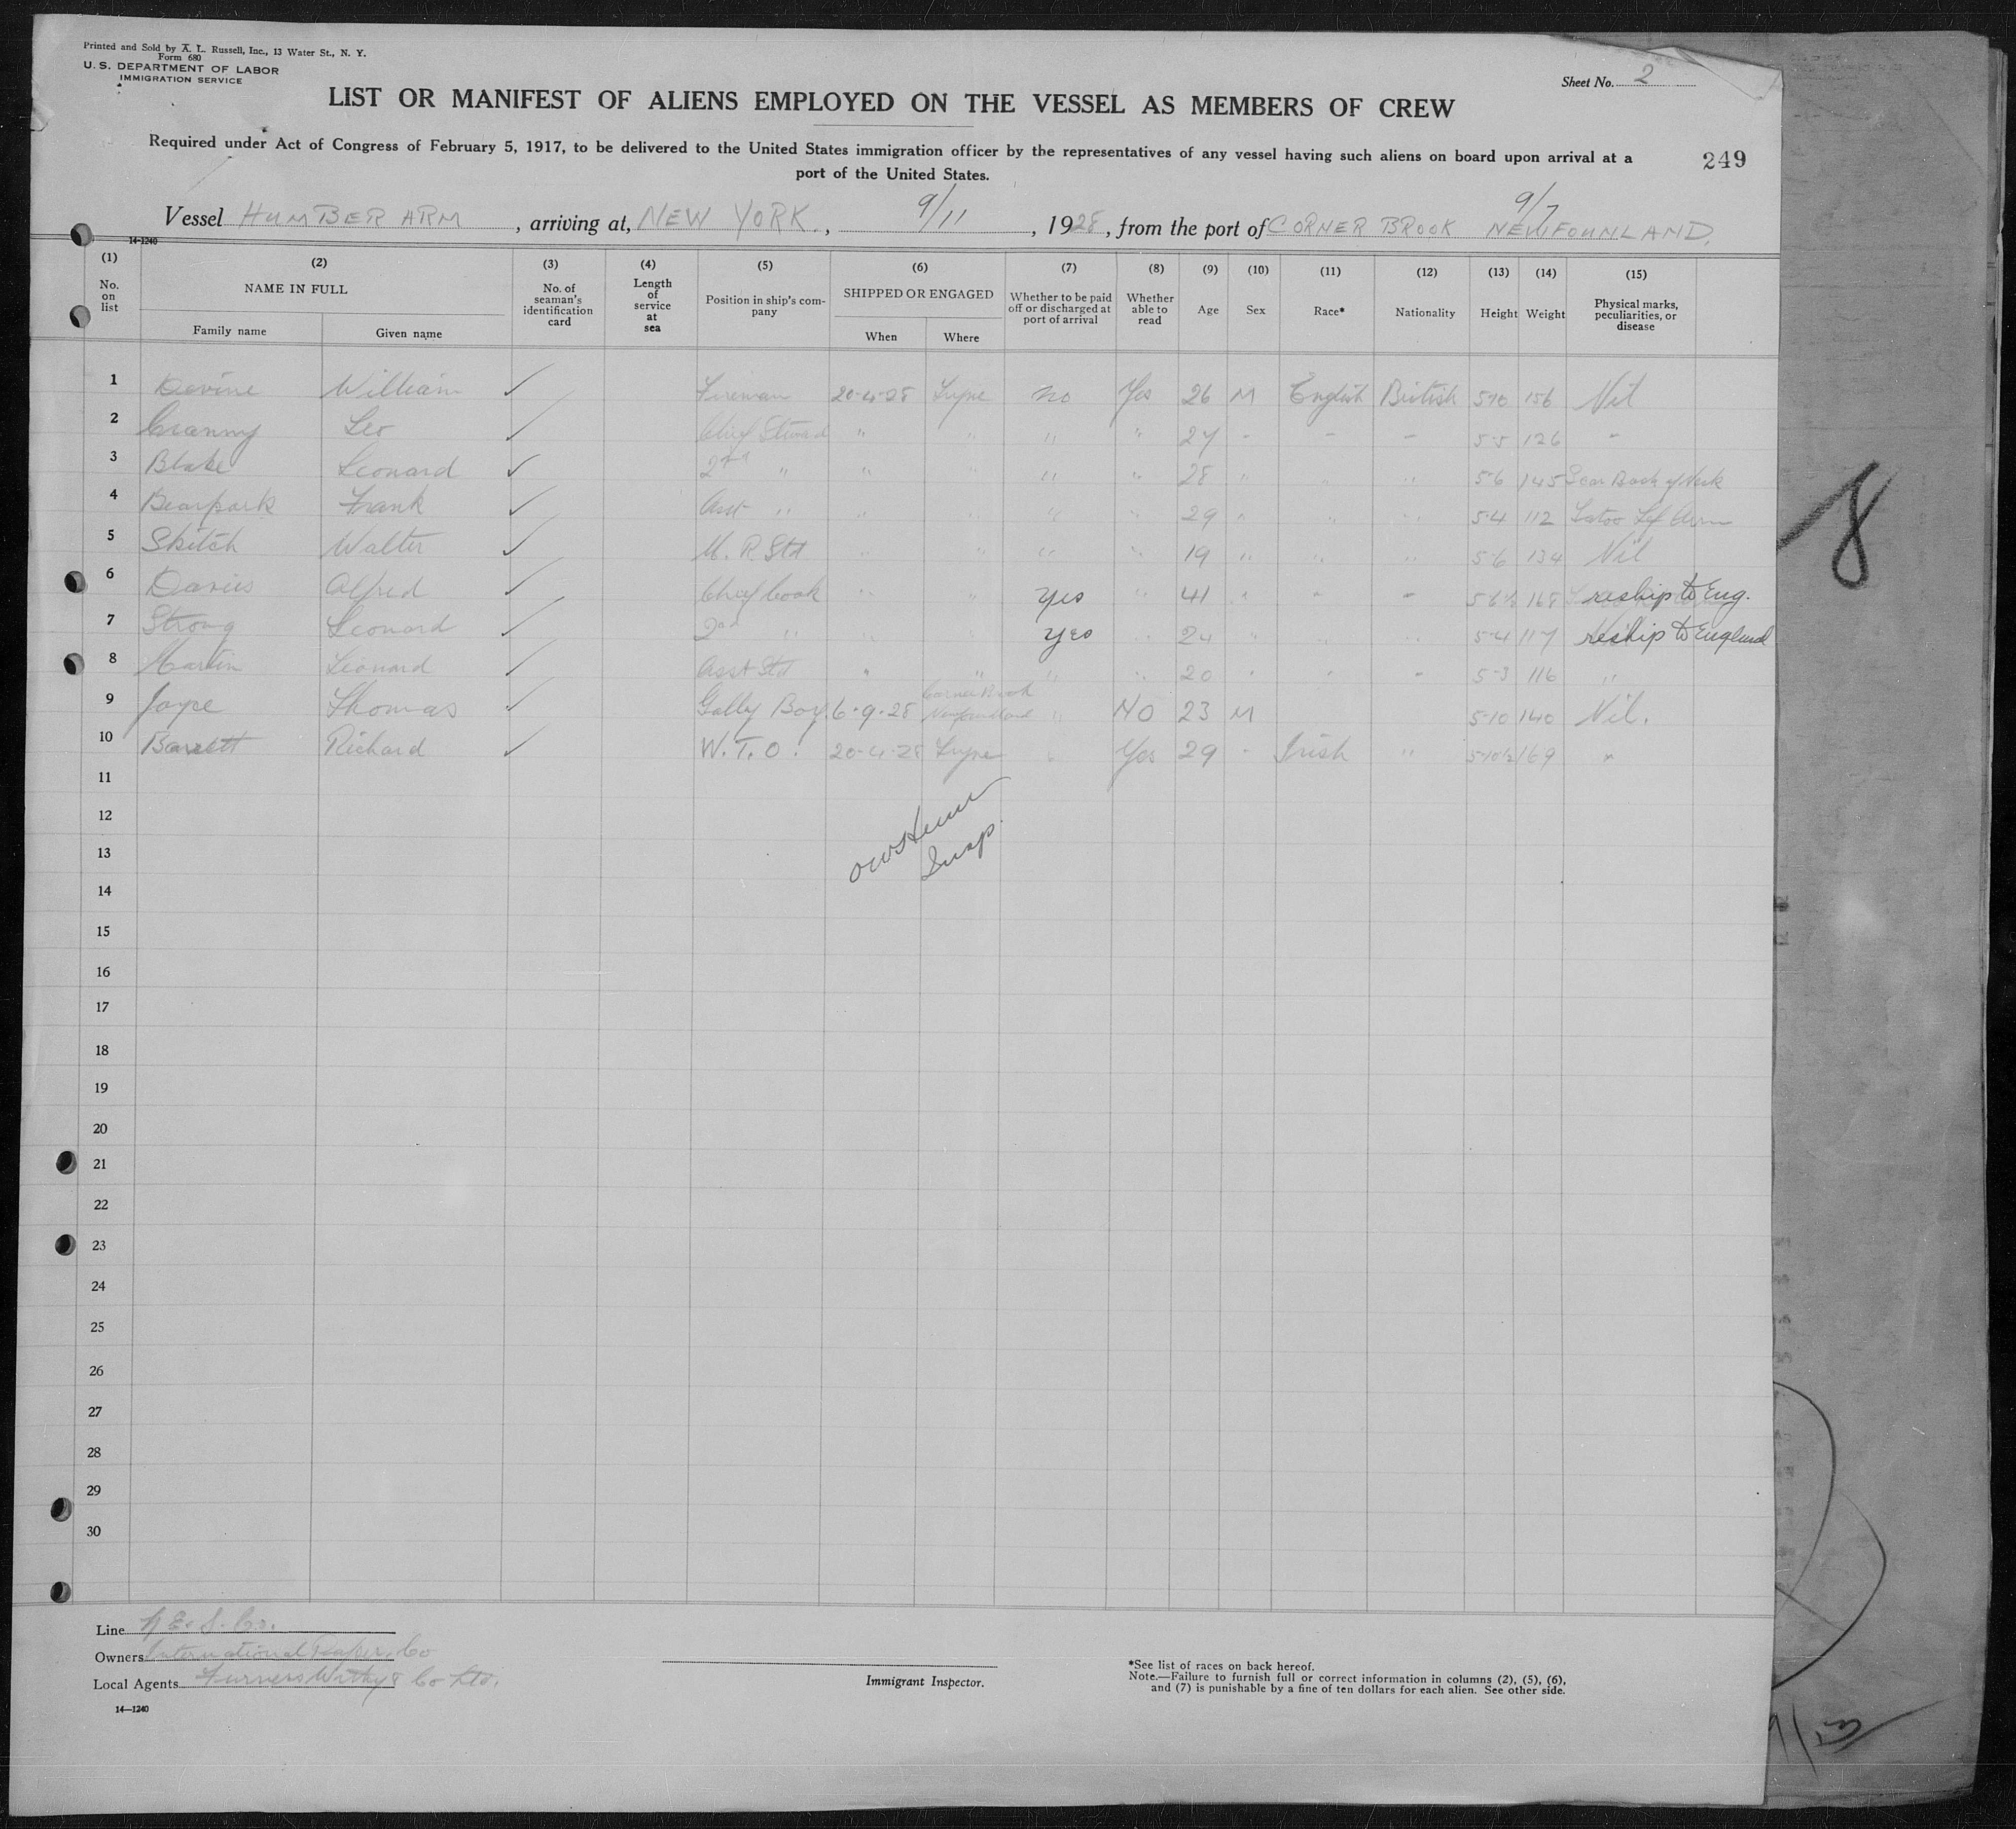 Printed and Sold by A. L. Russell, Inc., 13 Water St., N. Y.
Form 680
U. S. DEPARTMENT OF LABOR
IMMIGRATION SERVICE
Sheet No. 2
LIST OR MANIFEST OF ALIENS EMPLOYED ON THE VESSEL AS MEMBERS OF CREW
Required under Act of Congress of February 5, 1917, to be delivered to the United States immigration officer by the representatives of any vessel having such aliens on board upon arrival at a
port of the United States.
249
Vessel HUMBER ARM, arriving at, NEW YORK., 9/11, 1928, from the port of CORNER BROOK NEWFOUNLAND. 9/7
14-1240
(1) (2) (3) (4) (5) (6) (7) (8) (9) (10) (11) (12) (13) (14) (15)
No. on list NAME IN FULL Family name Given name No. of seaman's identification card Length of service at sea Position in ship's company SHIPPED OR ENGAGED When Where Whether to be paid off or discharged at port of arrival Whether able to read Age Sex Race* Nationality Height Weight Physical marks, peculiarities, or disease
1 Devine William ✓ Fireman 20-4-28 Tyne no Yes 26 M English British 5-10 156 Nil
2 Granny Leo ✓ Chief Steward " " " " 27 - - - 5-5 126 "
3 Blake Leonard ✓ 2nd " " " " " 28 " " " 5-6 145 Scar Back of Neck
4 Bearpark Frank ✓ Asst " " " " " 29 " " " 5-4 112 Tatoo Lef Arm
5 Skitch Walter ✓ M. R. Std " " " " 19 " " " 5-6 134 Nil
6 Davies Alfred ✓ Chief Cook " " Yes " 41 " " " 5-6½ 168 reship to Eng.
7 Strong Leonard ✓ 2nd " " " Yes " 24 " " " 5-4 117 reship to England
8 Martin Leonard ✓ Asst Std " " " " 20 " " " 5-3 116 "
9 Joyce Thomas ✓ Gally Boy. 6-9-28 Corner Brook Newfoundland " NO 23 M 5-10 140 Nil.
10 Barrett Richard ✓ W. T. O. 20-4-28 Tyne " Yes 29 - Irish " 5-10½ 169 "
11
12
13
Insp.
14
15
16
17
18
19
20
21
22
23
24
25
26
27
28
29
30
Line N. E. S. Co.
Owners International Paper. Co
Local Agents Furness Withy & Co Ltd.
Immigrant Inspector.
*See list of races on back hereof.
Note.—Failure to furnish full or correct information in columns (2), (5), (6),
and (7) is punishable by a fine of ten dollars for each alien. See other side.
14—1240
8